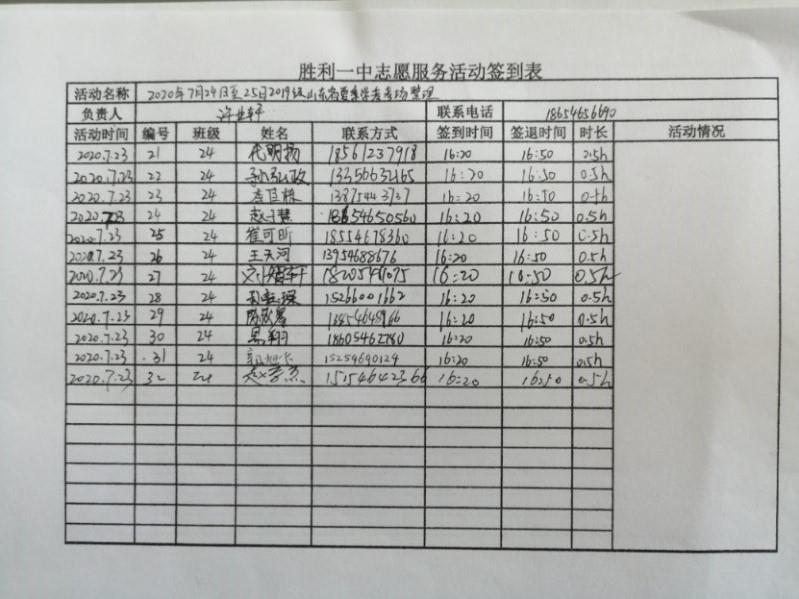 胜利一中志愿服务活动签到表
活动名称 2020年7月24日至25日2019级山东省夏季学考考场整理
负责人 许业轩 联系电话 18654656690
活动时间 编号 班级 姓名 联系方式 签到时间 签退时间 时长 活动情况
2020.7.23 21 24 代明扬 18561237918 16:20 16:50 0.5h
2020.7.23 22 24 13350632165 16:20 16:50 0.5h
2020.7.23 23 24 李佳栋 13875443737 16:20 16:50 0.5h
2020.7.23 24 24 赵子慧 18654650560 16:20 16:50 0.5h
2020.7.23 25 24 崔可昕 18554678360 16:20 16:50 0.5h
2020.7.23 26 24 王天河 13954688676 16:20 16:50 0.5h
2020.7.23 27 24 18205461075 16:20 16:50 0.5h
2020.7.23 28 24 15266001662 16:20 16:50 0.5h
2020.7.23 29 24 16:20 16:50 0.5h
2020.7.23 30 24 翔 18605462780 16:20 16:50 0.5h
2020.7.23 31 24 15254690124 16:20 16:50 0.5h
2020.7.23 32 24 15154642366 16:20 16:50 0.5h